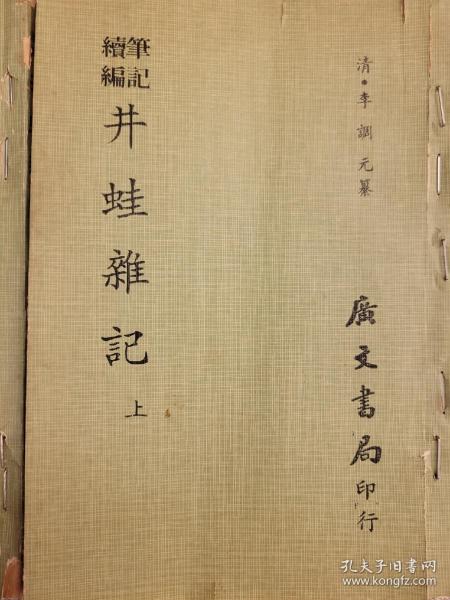 清·李調元纂
廣文書局印行
筆記
續編
井蛙雜記
上
孔夫子旧书网
www.kongfz.com